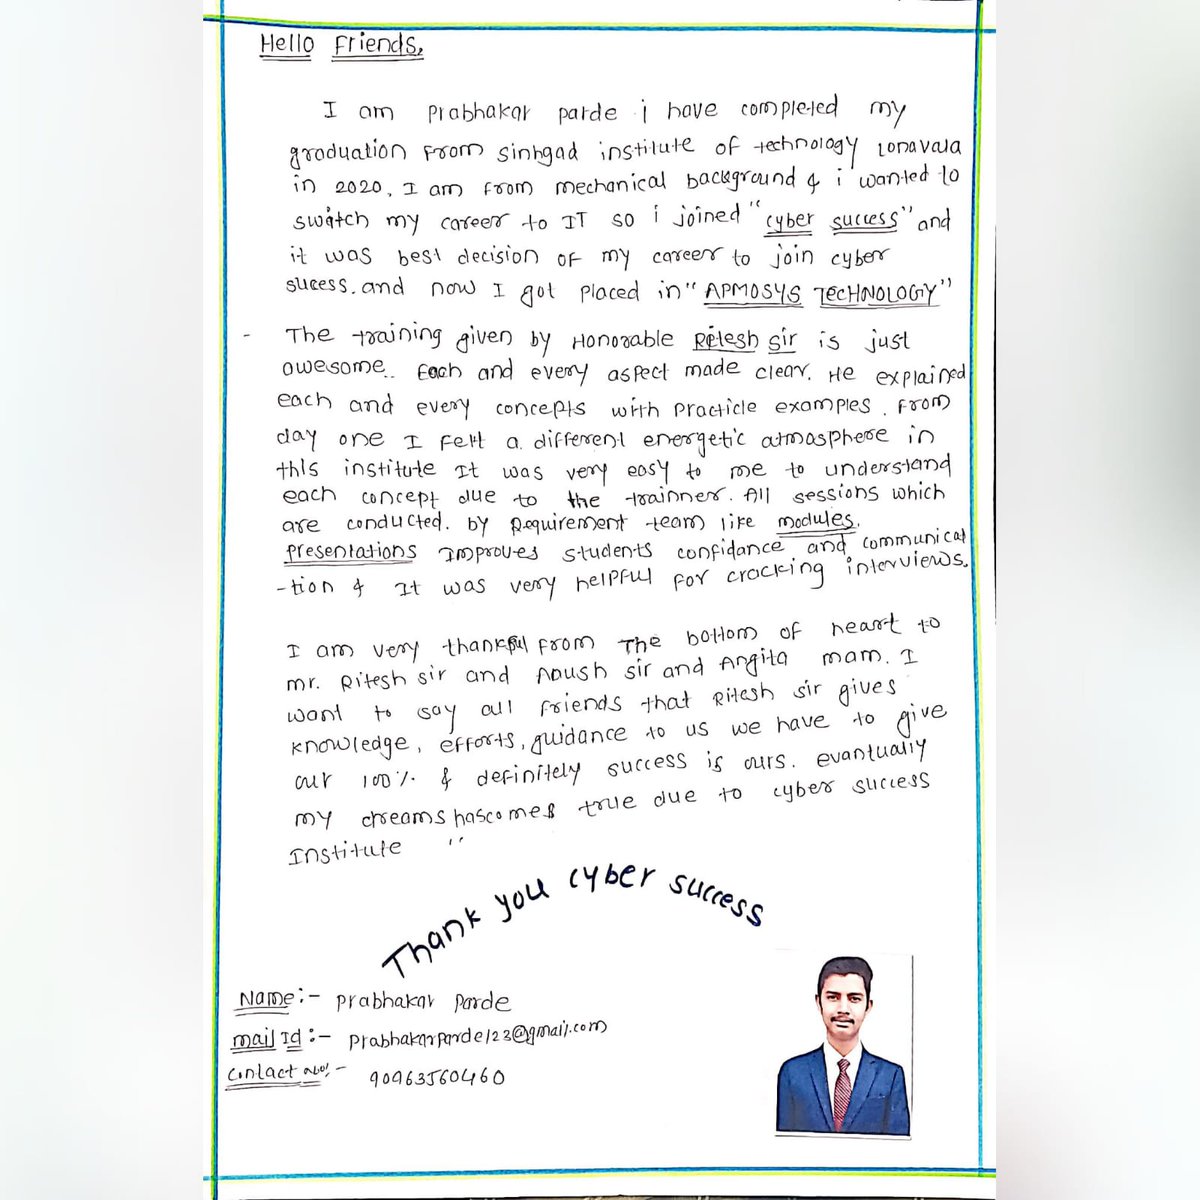 Hello Friends,
I am Prabhakar Parde i have completed my
graduation From Sinhgad institute of technology Lonavala
in 2020, I am From mechanical background & i wanted to
switch my career to IT so i joined "cyber success" and
it was best decision of my career to join cyber
sucess. and now I got placed in "APMOSYS TECHNOLOGY"
- The training given by Honorable Ritesh Sir is just
awesome.. Each and every aspect made clear. He explained
each and every concepts with practicle examples. From
day one I Felt a different energetic atmosphere in
this institute It was very easy to me to understand
each concept due to the trainner. All sessions which
are conducted. by Requirement team like modules.
Presentations Improves students confidance and communicat
-tion & It was very helpful for cracking interviews.
I am very thankful From The bottom of heart to
mr. Ritesh sir and Aoush sir and Angita mam. I
want to say all Friends that Ritesh sir gives
knowledge, efforts, guidance to us we have to give
our 100% & definitely success is ours. evantually
my dreams hascomes true due to cyber success
Institute "
Thank you cyber success
Name:- Prabhakar Parde
mail Id:- Prabhakarparde123@gmail.com
Contact No:- 90963560460